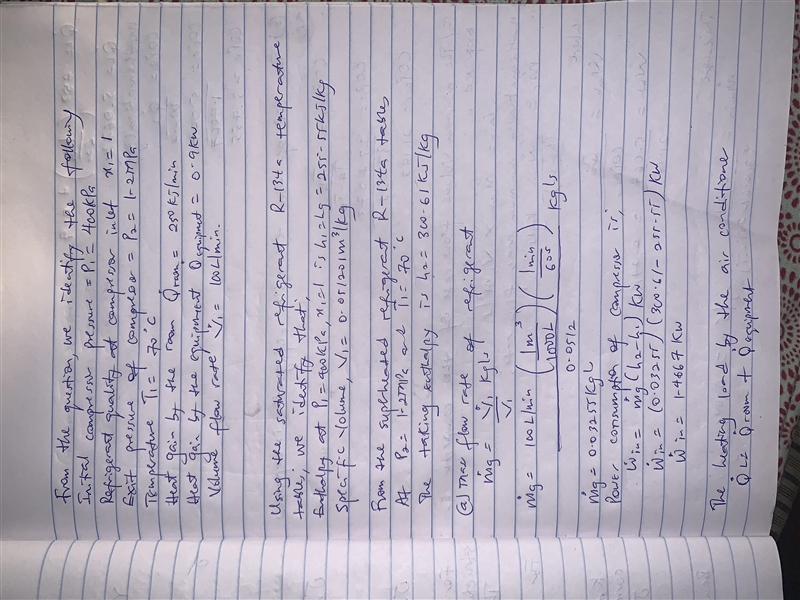 From the question, we identify the following
Initial compressor pressure = P₁ = 400kPa
Refrigerant quality at compressor inlet x₁ = 1
Exit pressure of compressor = P₂ = 1-2MPa
Temperature T₁ = 70°C
Heat gain by the room Q̇room = 250 KJ/min
Heat gain by the equipment Q̇equipment = 0.9KW
Volume flow rate V̇₁ = 100L/min.
Using the saturated refrigerant R-134a temperature
tables, we identify that:
Enthalpy at P₁ = 400KPa, x₁ = 1 is h₁ = hg = 255-55KJ/Kg
Specific Volume, V₁ = 0.051201m³/Kg
From the superheated refrigerant R-134a tables
At P₂ = 1-2MPa and T₁ = 70°C
The taking enthalpy is h₂ = 300.61KJ/Kg
(a) mass flow rate of refrigerant
ṁg = V̇₁/V₁ Kg/s
ṁg = 100L/min (1m³/1000L)(1min/60s)/0.0512 Kg/s
ṁg = 0.03255Kg/s
Power consumption of compressor is;
Ẇin = ṁg(h₂-h₁) KW
Ẇin = (0.03255)(300.61-255.55) KW
Ẇin = 1.4667 KW
The heating load by the air conditioner
Q̇L = Q̇room + Q̇equipment